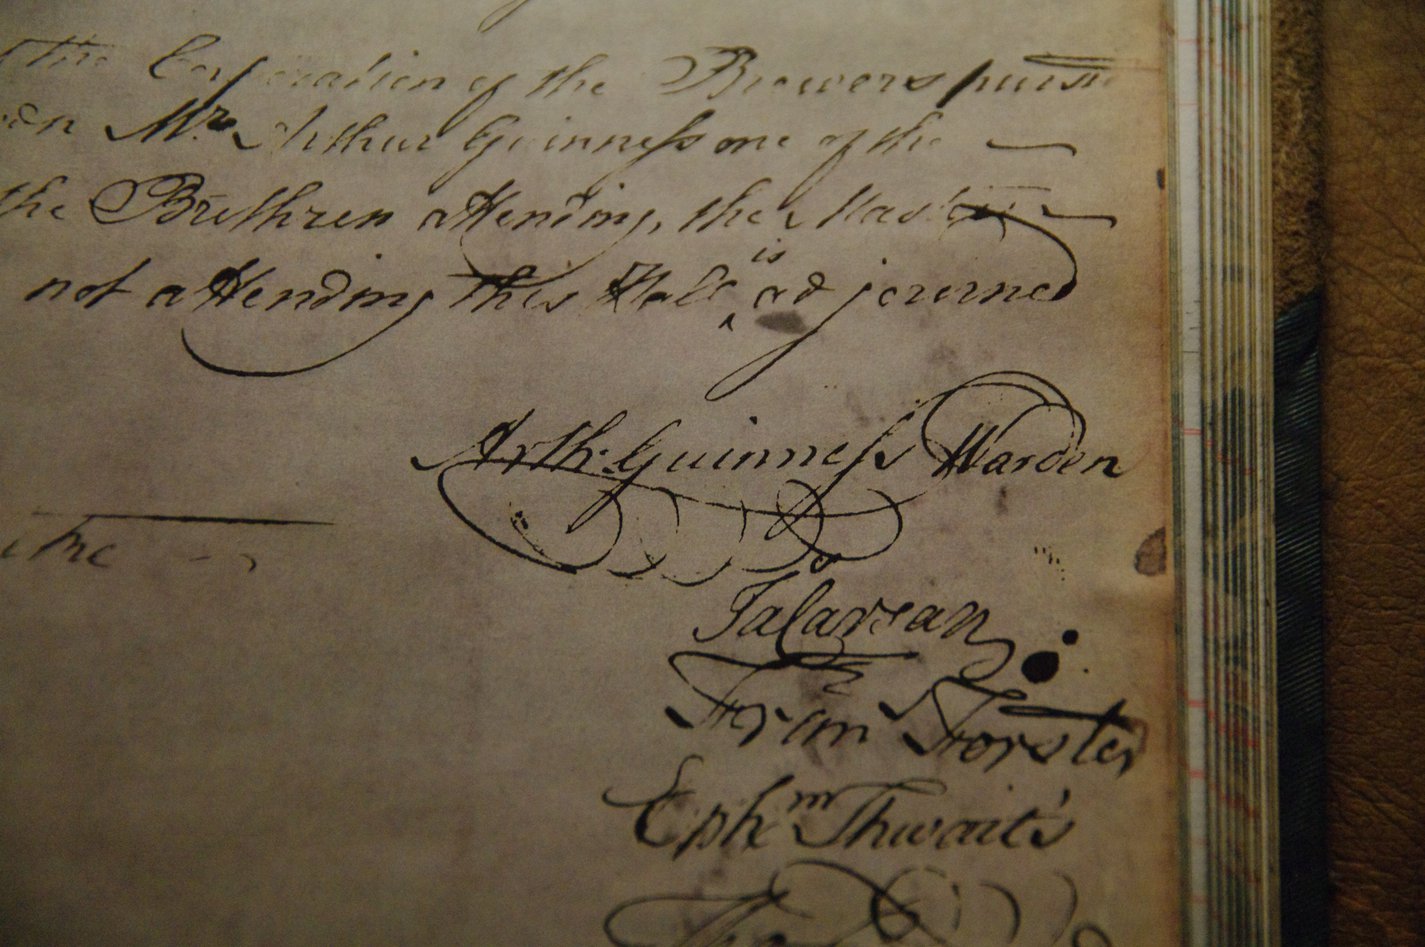 the Corporation of the Brewers pursu
Mr. Arthur Guinness one of the
the Brethren attending, the Master
not attending this Hall is adjourned
Arth: Guinness Warden
the
Forster
Ephm Thwaits